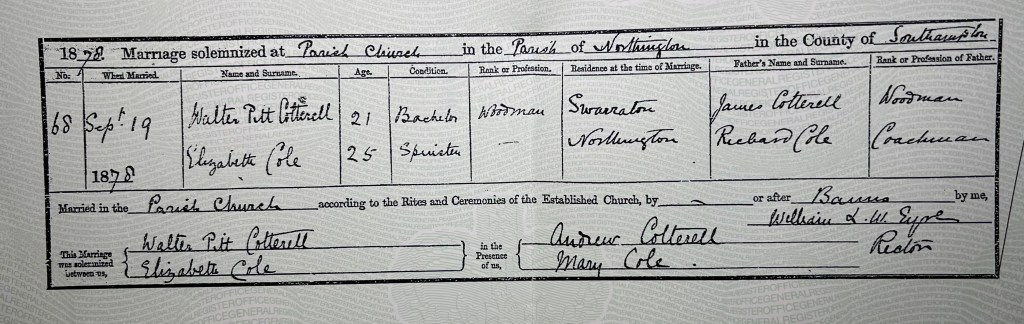 1878. Marriage solemnized at Parish Church in the Parish of Northington in the County of Southampton
No. When Married. Name and Surname. Age. Condition. Rank or Profession. Residence at the time of Marriage. Father's Name and Surname. Rank or Profession of Father.
68 Sept. 19 1878 Walter Pitt Cotterell 21 Bachelor Woodman Swarraton James Cotterell Woodman
Elizabeth Cole 25 Spinster — Northington Richard Cole Coachman
Married in the Parish Church according to the Rites and Ceremonies of the Established Church, by or after Banns by me,
William L. W. Eyre
Rector
This Marriage was solemnized between us,
Walter Pitt Cotterell
Elizabeth Cole
in the Presence of us,
Andrew Cotterell
Mary Cole.